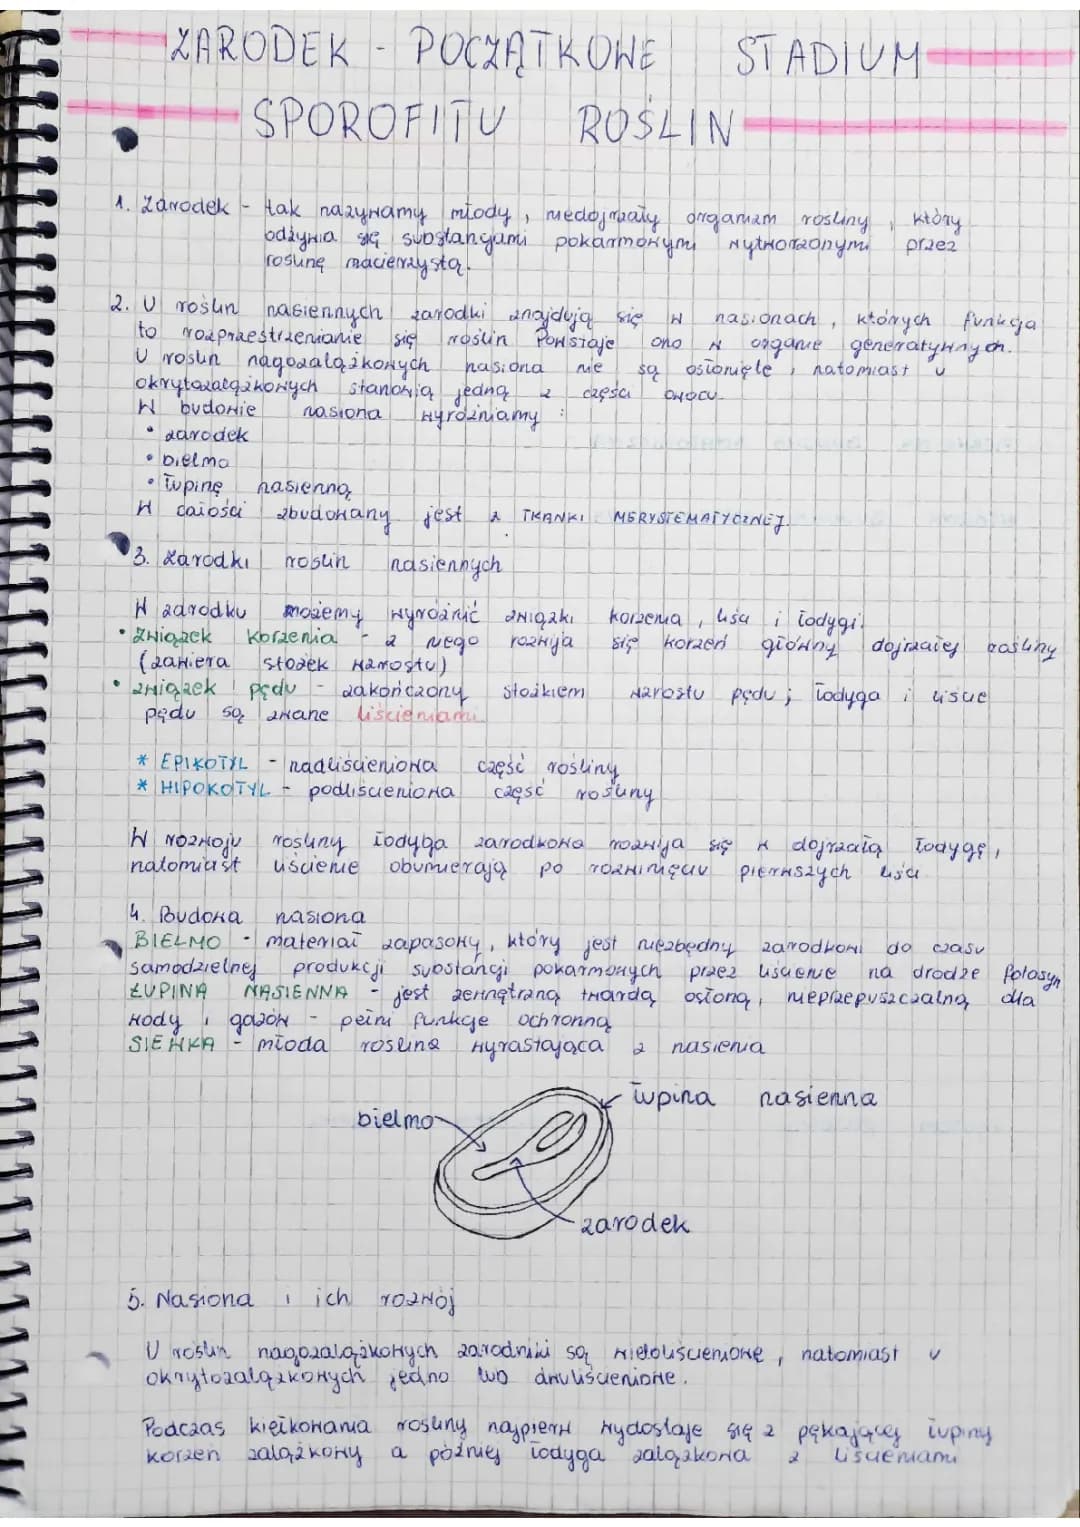 ZARODEK - POCZĄTKOWE STADIUM
SPOROFITU ROŚLIN
1. Zarodek - tak nazywamy młody, niedojrzały organizm rośliny, który
odżywia się substancjami pokarmowymi wytworzonymi przez
roślinę macierzystą.
2. U roślin nasiennych zarodki znajdują się w nasionach, których funkcja
to rozprzestrzenianie się roślin Powstaje ono w organie generatywnych.
U roślin nagozalążkowych nasiona nie są osłonięte, natomiast u
okrytozalążkowych stanowią jedną z części owocu.
W budowie nasiona wyróżniamy:
• zarodek
• bielmo
• łupinę nasienną
W całości zbudowany jest z TKANKI MERYSTEMATYCZNEJ.
3. Zarodki roślin nasiennych
W zarodku możemy wyróżnić związki korzenia, liścia i łodygi.
• związek korzenia - z niego rozwija się korzeń główny dojrzałej rośliny
(zawiera stożek wzrostu)
• związek pędu - zakończony stożkiem wzrostu pędu; łodyga i liście
pędu są zwane liścieniami
* EPIKOTYL - nadliścieniowa część rośliny
* HIPOKOTYL - podliścieniowa część rośliny
W rozwoju rośliny łodyga zarodkowa rozwija się w dojrzałą łodygę,
natomiast liścienie obumierają po rozwinięciu pierwszych liści
4. Budowa nasiona
BIELMO - materiał zapasowy, który jest niezbędny zarodkowi do czasu
samodzielnej produkcji substancji pokarmowych przez liścienie na drodze fotosyn
ŁUPINA NASIENNA - jest zewnętrzną twardą osłoną, nieprzepuszczalną dla
wody i gazów - pełni funkcje ochronną
SIEWKA - młoda roślina wyrastająca z nasienia
łupina nasienna
bielmo
zarodek
5. Nasiona i ich rozwój
U roślin nagozalążkowych zarodniki są wieloliścieniowe, natomiast u
okrytozalążkowych jedno lub dwuliścieniowe.
Podczas kiełkowania rośliny najpierw wydostaje się z pękającej łupiny
korzeń zalążkowy a później łodyga zalążkowa z liścieniami